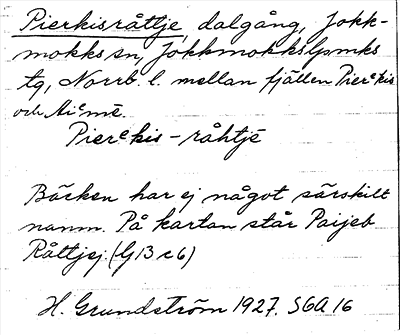 Pierkisråttje, dalgång, Jokk-
mokks sn, Jokkmokks lpmks
tg, Norrb. l. mellan fjällen Pierᵉkis
och Aiᵉmē.
Pierᵉkis-råhtjē
Bäcken har ej något särskilt
namn. På kartan står Paijeb
Råttjej. (G13c6)
H. Grundström 1927. SGA 16